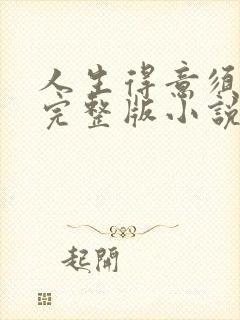 人生得意须
完整版小說
起開